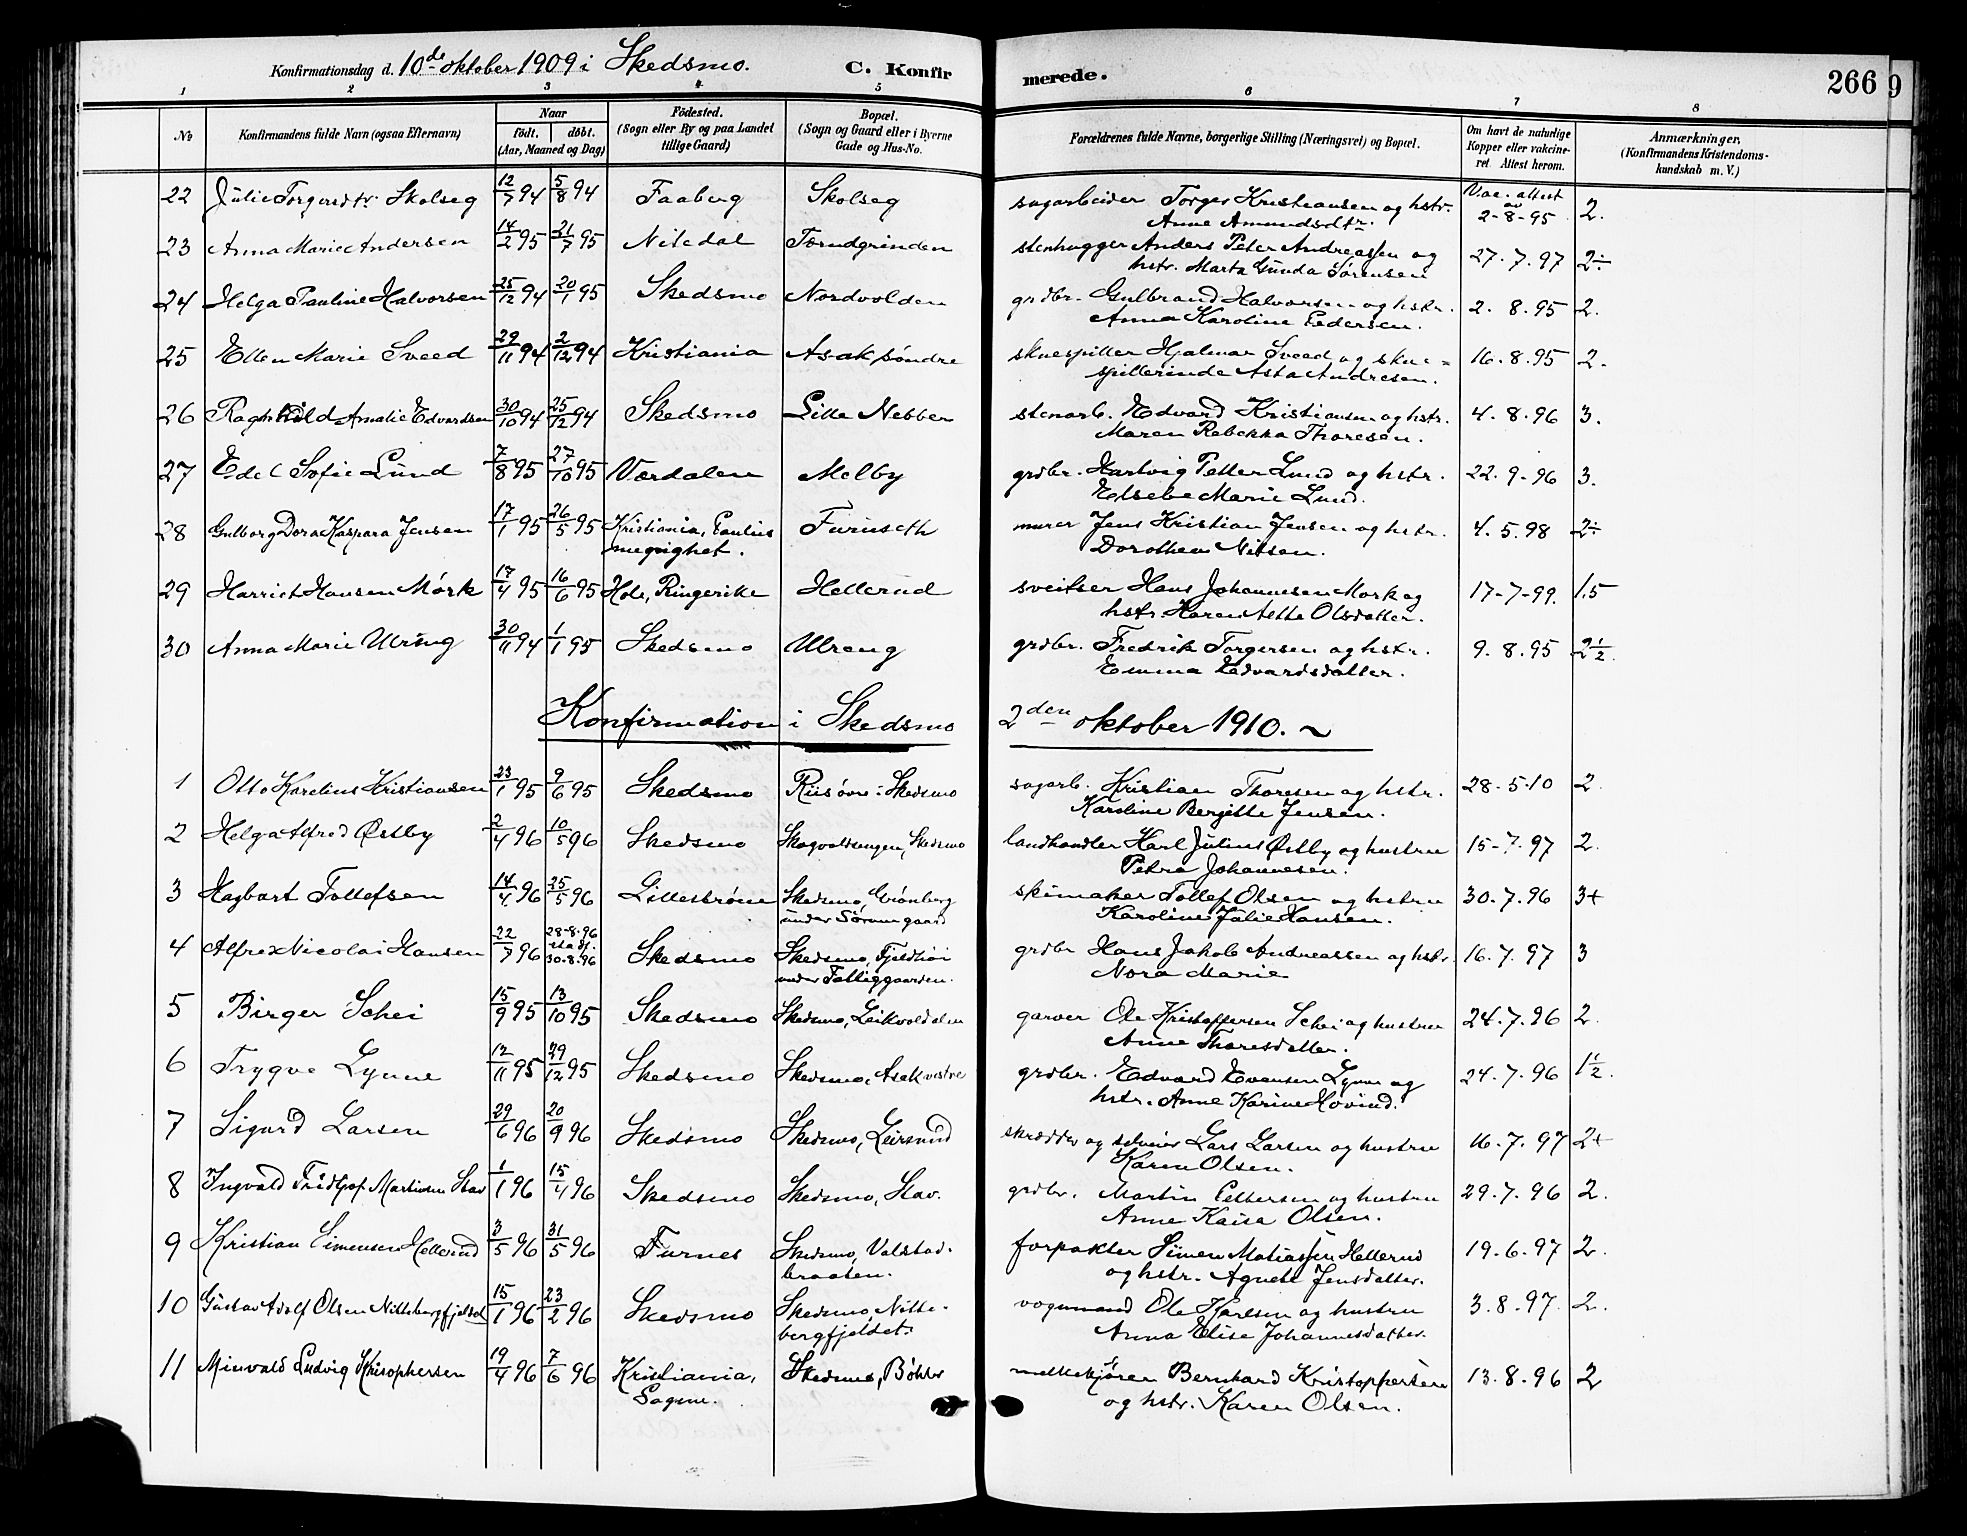 Konfirmationsdag d. 10de oktober 1909 i Skedsmo. C. Konfir merede. 266 9
1 2 3 4 5 6 7 8
No Konfirmandens fulde Navn (ogsaa Efternavn) Naar født. døbt. (Aar, Maaned og Dag) Fødested. (Sogn eller By og paa Landet tillige Gaard) Bopæl. (Sogn og Gaard eller i Byerne Gade og Hus-No. Forældrenes fulde Navne, borgerlige Stilling (Næringsvei) og Bopæl. Om havt de naturlige Kopper eller vakcineret. Attest herom. Anmærkninger, (Konfirmandens Kristendomskundskab m. V.)
22 Julie Torgersdtr. Skolseg 12/7 94 5/8 94 Faaberg Skolseg sagarbeider Torger Kristiansen og hstr. Vac. attest av 2-8-95 2.
Anne Amundsdtr.
23 Anna Marie Andersen 14/2 95 21/7 95 Nitedal Tærudgrinden stenhugger Anders Peter Andreassen og 27.7.97 2÷
hstr. Marta Gunda Sørensen
24 Helga Pauline Halvorsen 25/12 94 20/1 95 Skedsmo Nordvolden grdbr. Gulbrand Halvorsen og hstr. 2.8.95 2.
Anna Karoline Pedersen.
25 Ellen Marie Sveed 29/11 94 2/12 94 Kristiania Asak søndre skuespiller Hjalmar Sveed og skue= 16.8.95 2.
spillerinde Asta Andresen.
26 Ragnhild Amalie Edvardsen 30/10 94 25/12 94 Skedsmo Lille Nebben stenarb. Edvard Kristiansen og hstr. 4.8.96 3.
Maren Rebekka Thoresen.
27 Edel Sofie Lund 7/8 95 27/10 95 Værdalen Melby grdbr. Hartvig Petter Lund og hstr. 22.9-96 3.
Elsebe Marie Lund.
28 Gulborg Dora Kaspara Jensen 17/1 95 26/5 95 Kristiania, Paulus Furuseth murer Jens Kristian Jensen og hstr. 4.5.98 2÷
megnighet. Dorothea Nilsen.
29 Harriet Hansen Mørk 17/4 95 16/6 95 Hole, Ringerike Hellerud sveitser Hans Johannesen Mørk og 17-7-99. 1.5
hstr. Karen Aette Olsdatter.
30 Anna Marie Ulreng 30/11 94 1/1 95 Skedsmo Ulreng grdbr. Fredrik Torgersen og hstr. 9.8.95 2 1/2.
Emma Edvardsdatter.
Konfirmation i Skedsmo 2den oktober 1910.
1 Otto Karelius Kristiansen 23/1 95 9/6 95 Skedsmo Riis øvre i Skedsmo sagarb. Kristian Thoresen og hstr. 28-5-10 2
Karoline Bergitte Jensen.
2 Helge Alfred Østby 2/4 96 10/5 96 Skedsmo Skogvoldsengen, Skedsmo landhandler Karl Julius Østby og hustru 15-7.97 2.
Petra Johannesen.
3 Hagbart Tollefsen 14/4 96 25/5 96 Lillestrøm Skedsmo, Grønberg skimaker Tollef Olsen og hstru 30.7.96 3+
under Sørum gaard Karoline Julie Hansen.
4 Alfred Nicolai Hansen 22/7 96 28-8-96 stadf. 30.8.96 Skedsmo Skedsmo, Fjeldhøi grdbr Hans Jakob Andreassen og hstr. 16.7.97 3
under Tælliggaarden. Nora Marie
5 Birger Schei 15/9 95 13/10 95 Skedsmo Skedsmo, Leikvoldalen garver Ole Kristoffersen Schei og hustru 24.7.96 2.
Anne Thoresdatter.
6 Trygve Lynne 12/11 95 29/12 95 Skedsmo Skedsmo, Asak vestre grdbr. Edvard Evensen Lynne og 24.7.96 1 1/2.
hstr. Anne Karine Hovind.
7 Sigurd Larsen 29/6 96 20/9 96 Skedsmo Skedsmo, Leirsund skrædder og selveier Lars Larsen og hustru 16.7.97 2+
Karen Olsen.
8 Ingvald Fridtjof Martinsen Stav 1/1 96 15/4 96 Skedsmo Skedsmo, Stav. grdbr. Martin Pettersen og hustru 29.7.96 2.
Anne Kaisa Olsen.
9 Kristian Simensen Hellerud 3/5 96 31/5 96 Furnes Skedsmo, Valstad- forpakter Simen Matiassen Hellerud 19.6.97 2.
braaten. og hstr. Agnete Jensdatter.
10 Gustav Adolf Olsen Nittebergfjeldet 15/1 96 23/2 96 Skedsmo Skedsmo, Nitte- vognmand Ole Karlsen og hustru 3.8.97. 2.
bergfjeldet. Anna Elise Johannesdatter.
11 Minvald Ludvig Kristophersen 19/4 96 7/6 96 Kristiania, Skedsmo, Bøhler melkekjører Bernhard Kristoffersen 13.8.96 2
Sagene. og hstr. Karen Olsen.